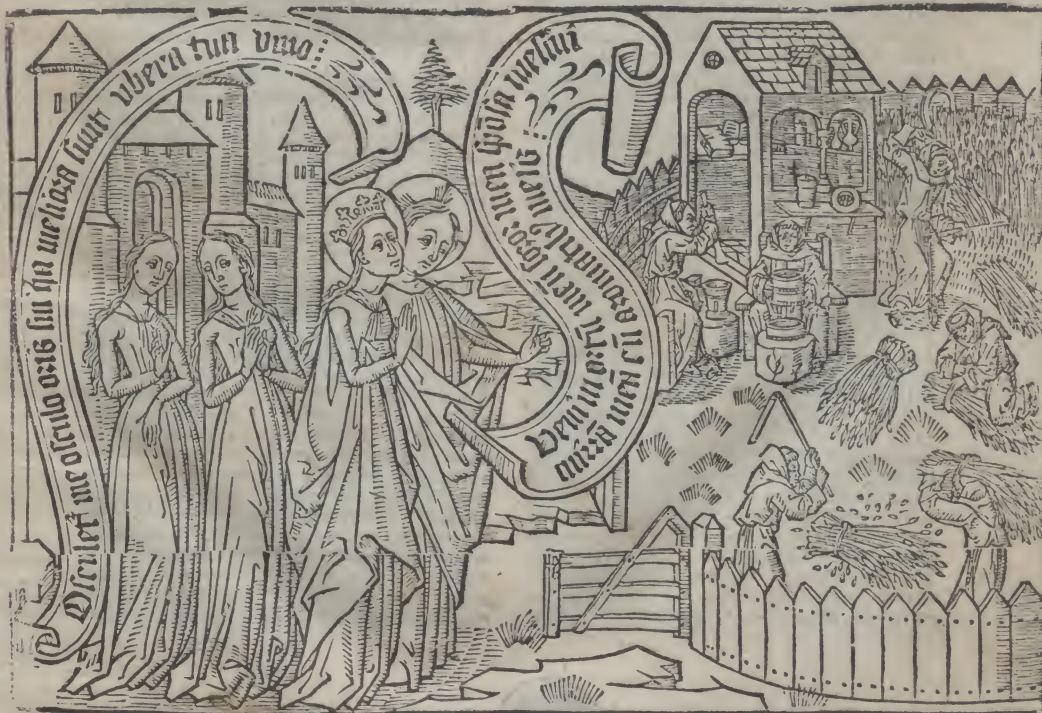 Oſculet̃ me oſculo oris ſui q̃a meliora ſunt vbera tua vino :
Veni in ortũ meũ ſoror mea ſpõſa meſſui
mirrã meã cũ aromatibꝰ meis :